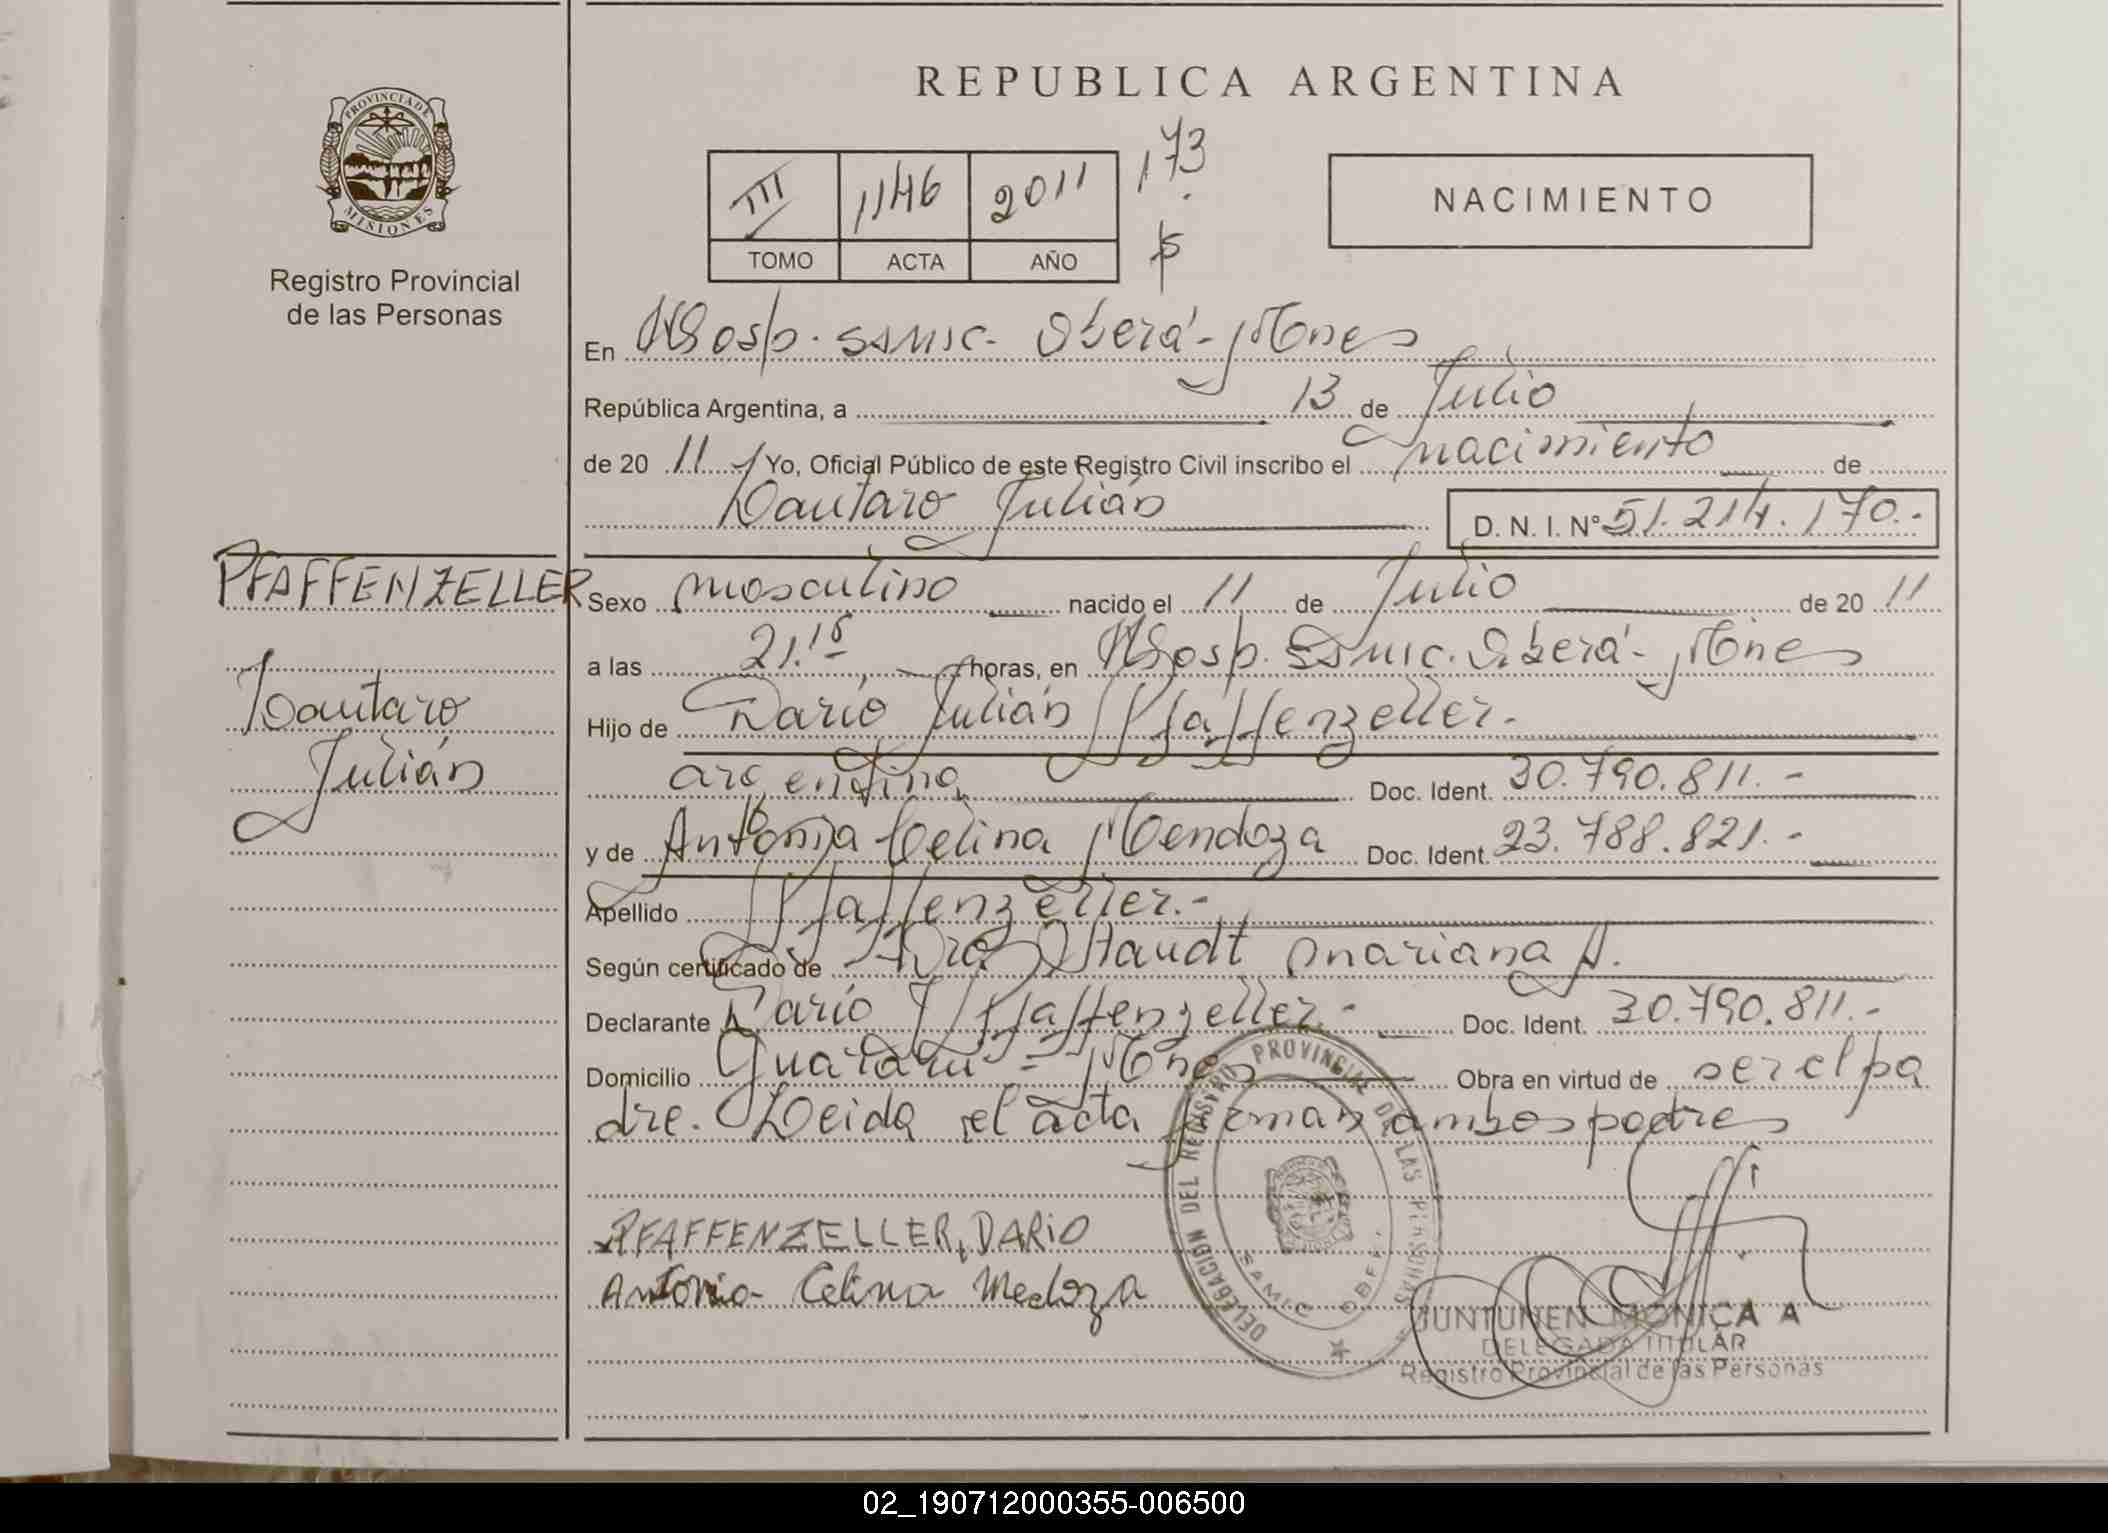 REPUBLICA ARGENTINA
PROVINCIA DE
MISIONES
Registro Provincial
de las Personas
III 1146 2011 173
TOMO ACTA AÑO
NACIMIENTO
En Hosp. SAMIC. Oberá - Mnes
República Argentina, a 13 de Julio
de 20 11 Yo, Oficial Público de este Registro Civil inscribo el nacimiento de
Lautaro Julián
D. N. I. N° 51.214.170.-
PFAFFENZELLER
Lautaro
Julián
Sexo masculino nacido el 11 de Julio de 20 11
a las 21.15 horas, en Hosp. SAMIC. Oberá - Mnes
Hijo de Darío Julián Pfaffenzeller.-
argentino Doc. Ident. 30.790.811.-
y de Antonia Celina Mendoza Doc. Ident. 23.788.821.-
Apellido Pfaffenzeller.-
Según certificado de Dra Staudt Mariana A.
Declarante Darío J Pfaffenzeller.- Doc. Ident. 30.790.811.-
Domicilio Guaraní - Mnes Obra en virtud de ser el pa
dre. Leida el acta firman ambos padres
PFAFFENZELLER, DARIO
Antonia Celina Medoza
DELEGACION DEL REGISTRO PROVINCIAL DE LAS PERSONAS
SAMIC OBERA
JUNTUNEN MONICA A
DELEGADA TITULAR
Registro Provincial de las Personas
02_190712000355-006500